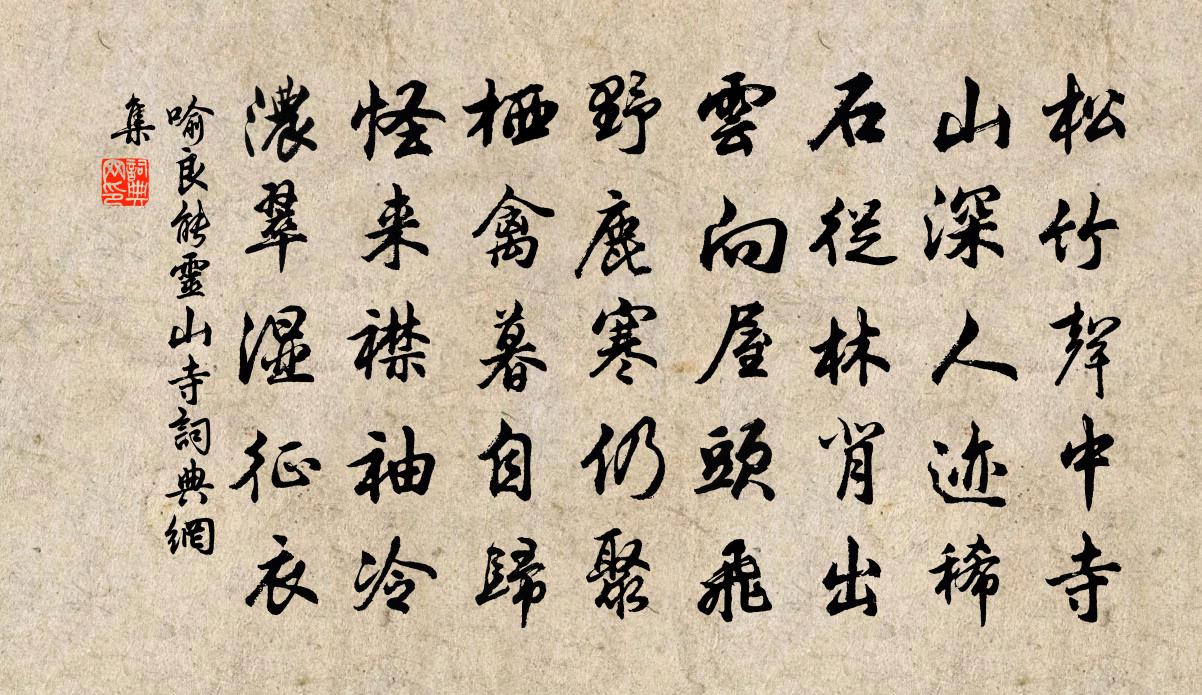 松竹聲中寺
山深人迹稀
石從林背出
雲向屋頭飛
野鹿寒仍聚
栖禽暮自歸
怪来襟袖冷
濃翠濕征衣
喻良能靈山寺詞典網
集
詞典
网印